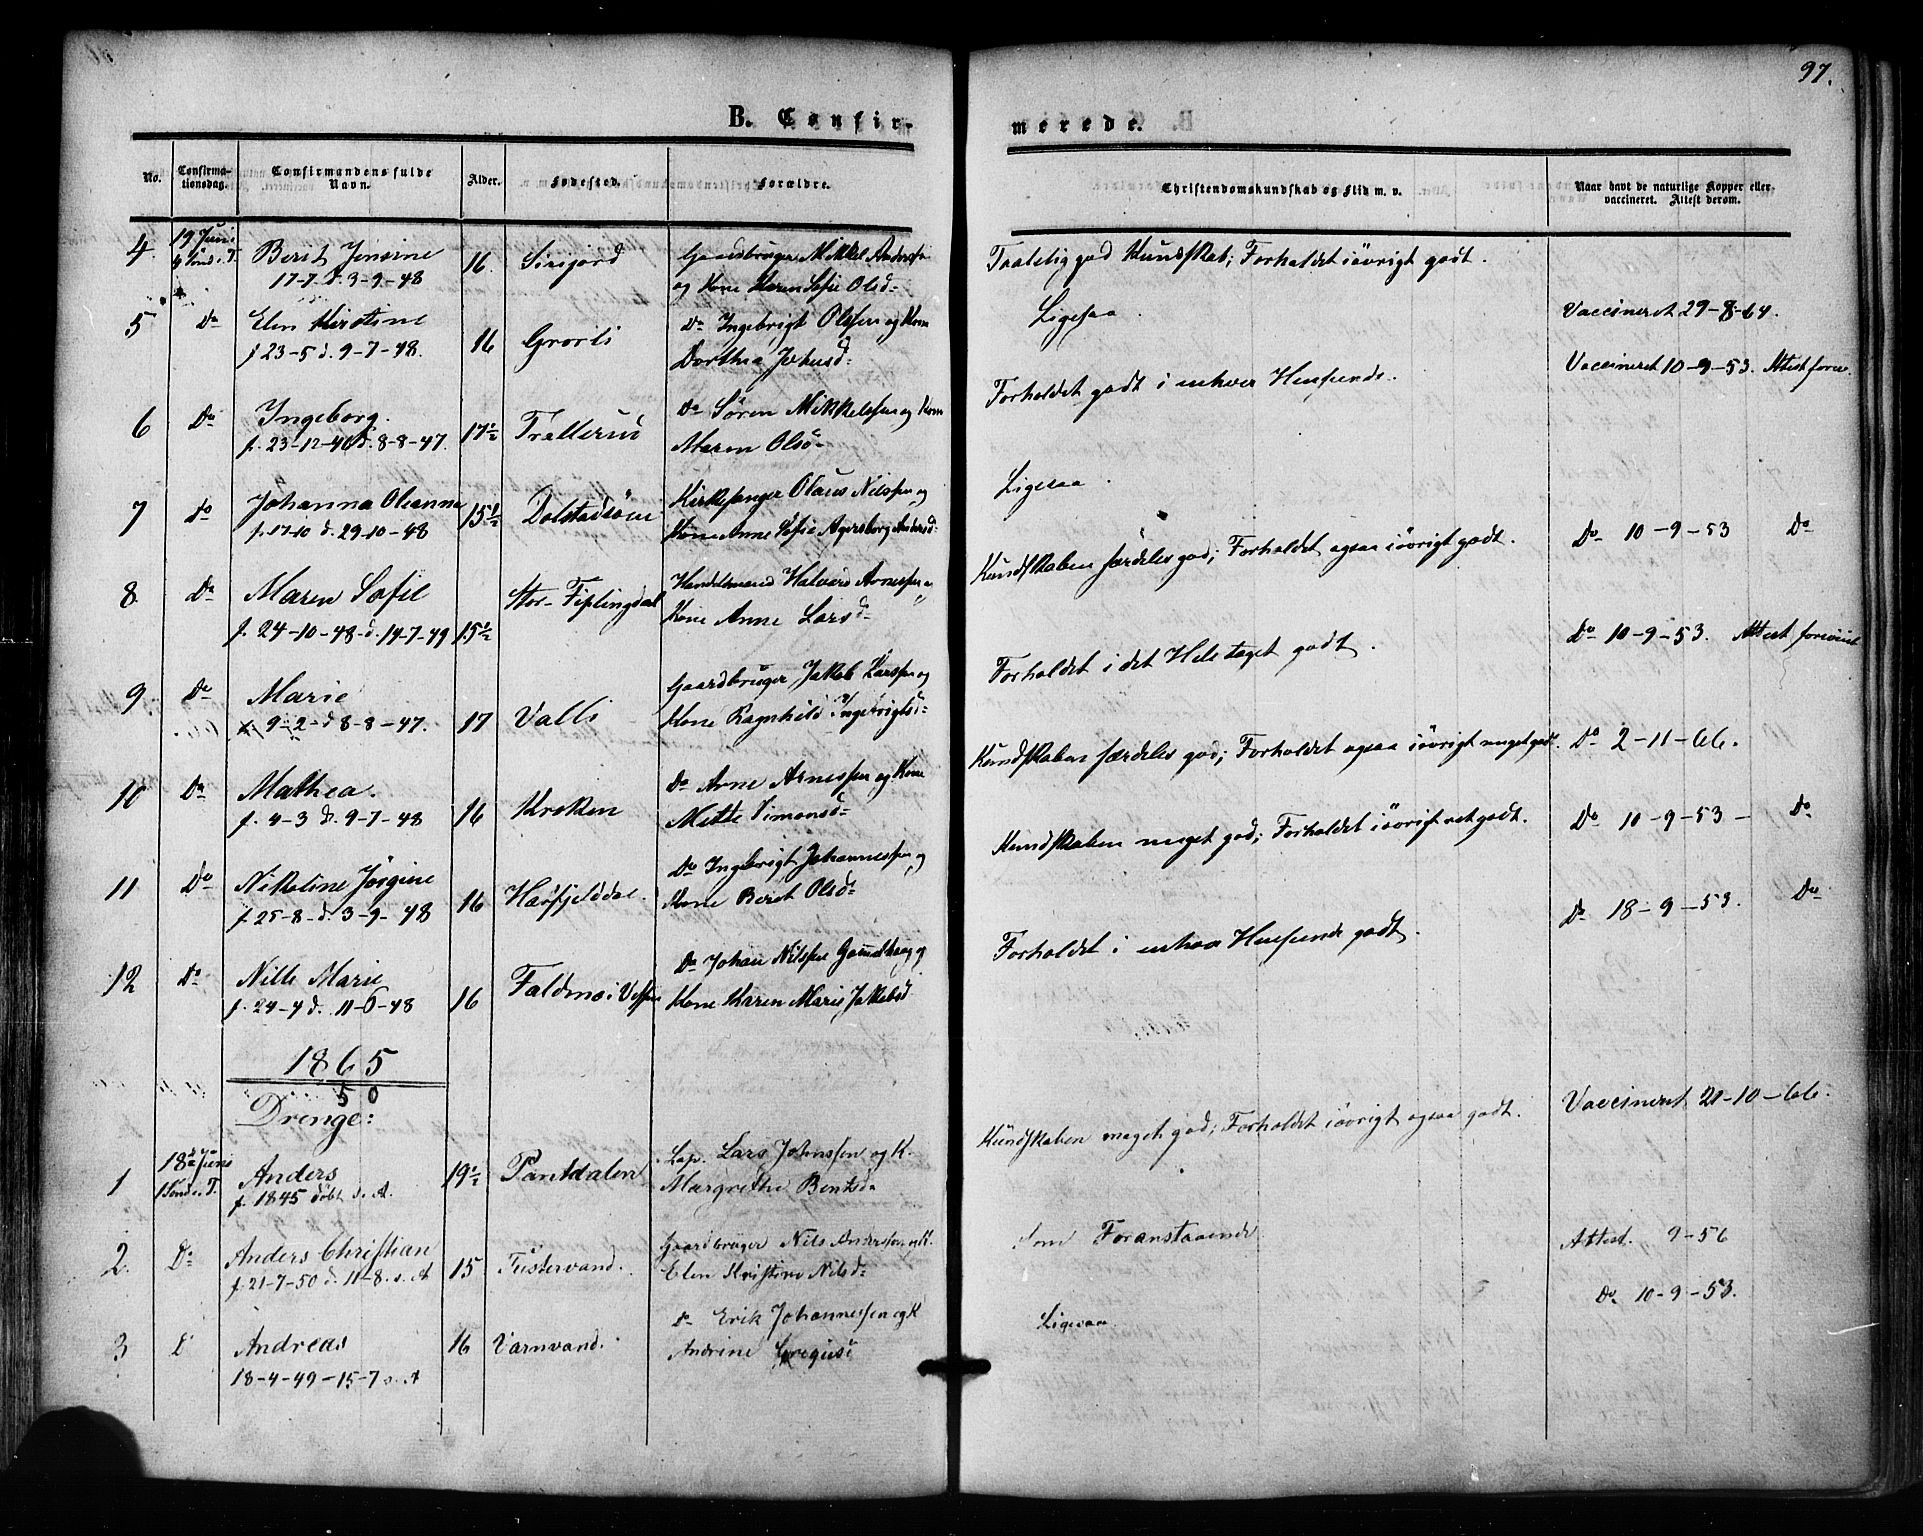 97.
B. Confir-
merede.
No.
Confirma-
tionsdag.
Confirmandens fulde
Navn.
Alder.
Fødested.
Forældre.
Christendomskundskab og Flid m. v.
Naar havt de naturlige Kopper eller
vaccineret. Attest derom.
4 19 Juni Berit Jensine 16. Gaardbruger Mikkel Anders
17-7 d. 3-9-48 og Kone Karen Sofie Olsd-
Taalelig god Kundskab; Forholdet iøvrigt godt.
5 Do Elen Kirstine 16 Grorli Do Ingebrigt Olsen og Kone
f 23-5 d. 9-7-48. Dorthea Johnsd-
Ligesaa.
Vaccineret 29-8-64.
6 Do Ingeborg. 17½ Trallerud Do Søren Mikkelsen og Kone
f. 23-12-46 d. 8-8-47. Maren Olsd-
Forholdet godt i enhver Henseende.
Vaccineret 10-9-53. Attest
7 Do Johanna Oleanna 15½ Dolstadsøien Kirkesanger Olaus Nilssen og
f. 17-10 d. 29-10-48 Kone Anne Sofie Agersborg Andersd-
Ligesaa.
8 Do Maren Sofie Stor-Fiplingdal Handelsmand Halvor Arnessen og
f. 24-10-48 d. 14-7-49 15½ Kone Anne Larsd-
Kundskaben særdeles god; Forholdet ogsaa iøvrigt godt.
Do 10-9-53 Do
9 Do Marie 17 Valli Gaardbruger Jakob Larssen og
9-2-d 8-8-47. Kone Ragnhild Ingebrigtsd-
Forholdet i det Hele taget godt.
Do 10-9-53. Attest forevist
10 Do Mathea. 16 Kroken Do Arne Arnessen og Kone
f. 4-3 d. 9-7-48 Mette Simonsd-
Kundskaben særdeles god; Forholdet ogsaa iøvrigt meget godt. Do 2-11-66.
11 Do Nikoline Jørgine 16 Hatfjelddal. Do Ingebrigt Johannessen og
f. 25-8-d. 3-9-48 Kone Beret Olsd-
Kundskaben meget god; Forholdet iøvrigt ret godt. Do 10-9-53- Do
12 Do Nille Marie 16 Faldmo i Vefsen Do Johan Nilssen og
f. 24-4 d. 11-6-48 Kone Karen Marie Jakobsd
Forholdet i enhver Henseende godt.
Do 18-9-53. Do
1865
50
Drenge:
1 18de Juni Anders 19½ Pantdalen Lap. Lars Johnssen og K.
f. 1845 døbt s. A. Margrethe Bentsd-
Kundskaben meget god; Forholdet iøvrigt ogsaa godt.
Vaccineret 21-10-66.
2. Do Anders Christian 15 Tustervand. Gaardbruger Nils Anderssen og K.
f. 21-7-50 d. 11-8. s. A Elen Kristine Nilsd-
Som Foranstaaende
Attest. 9-56
3 Andreas 16 Varnvand. Do Erik Johannessen og K
18-4-49-15-7 s. A Andrine
Ligesaa
Do 10-9-53.